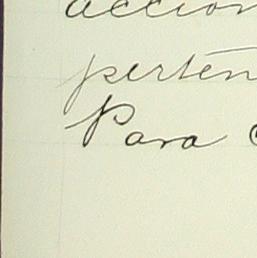 accion
pertén
Para